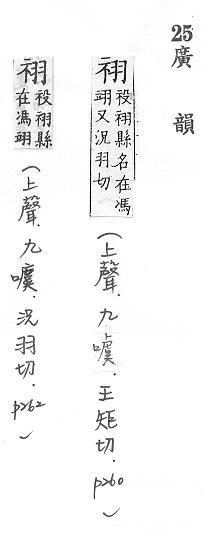 25廣韻
祤
祋祤縣名在馮
翊又況羽切
(上聲.九噳.王矩切.p260)
祤
祋祤縣
在馮翊
(上聲.九噳.況羽切.p262)